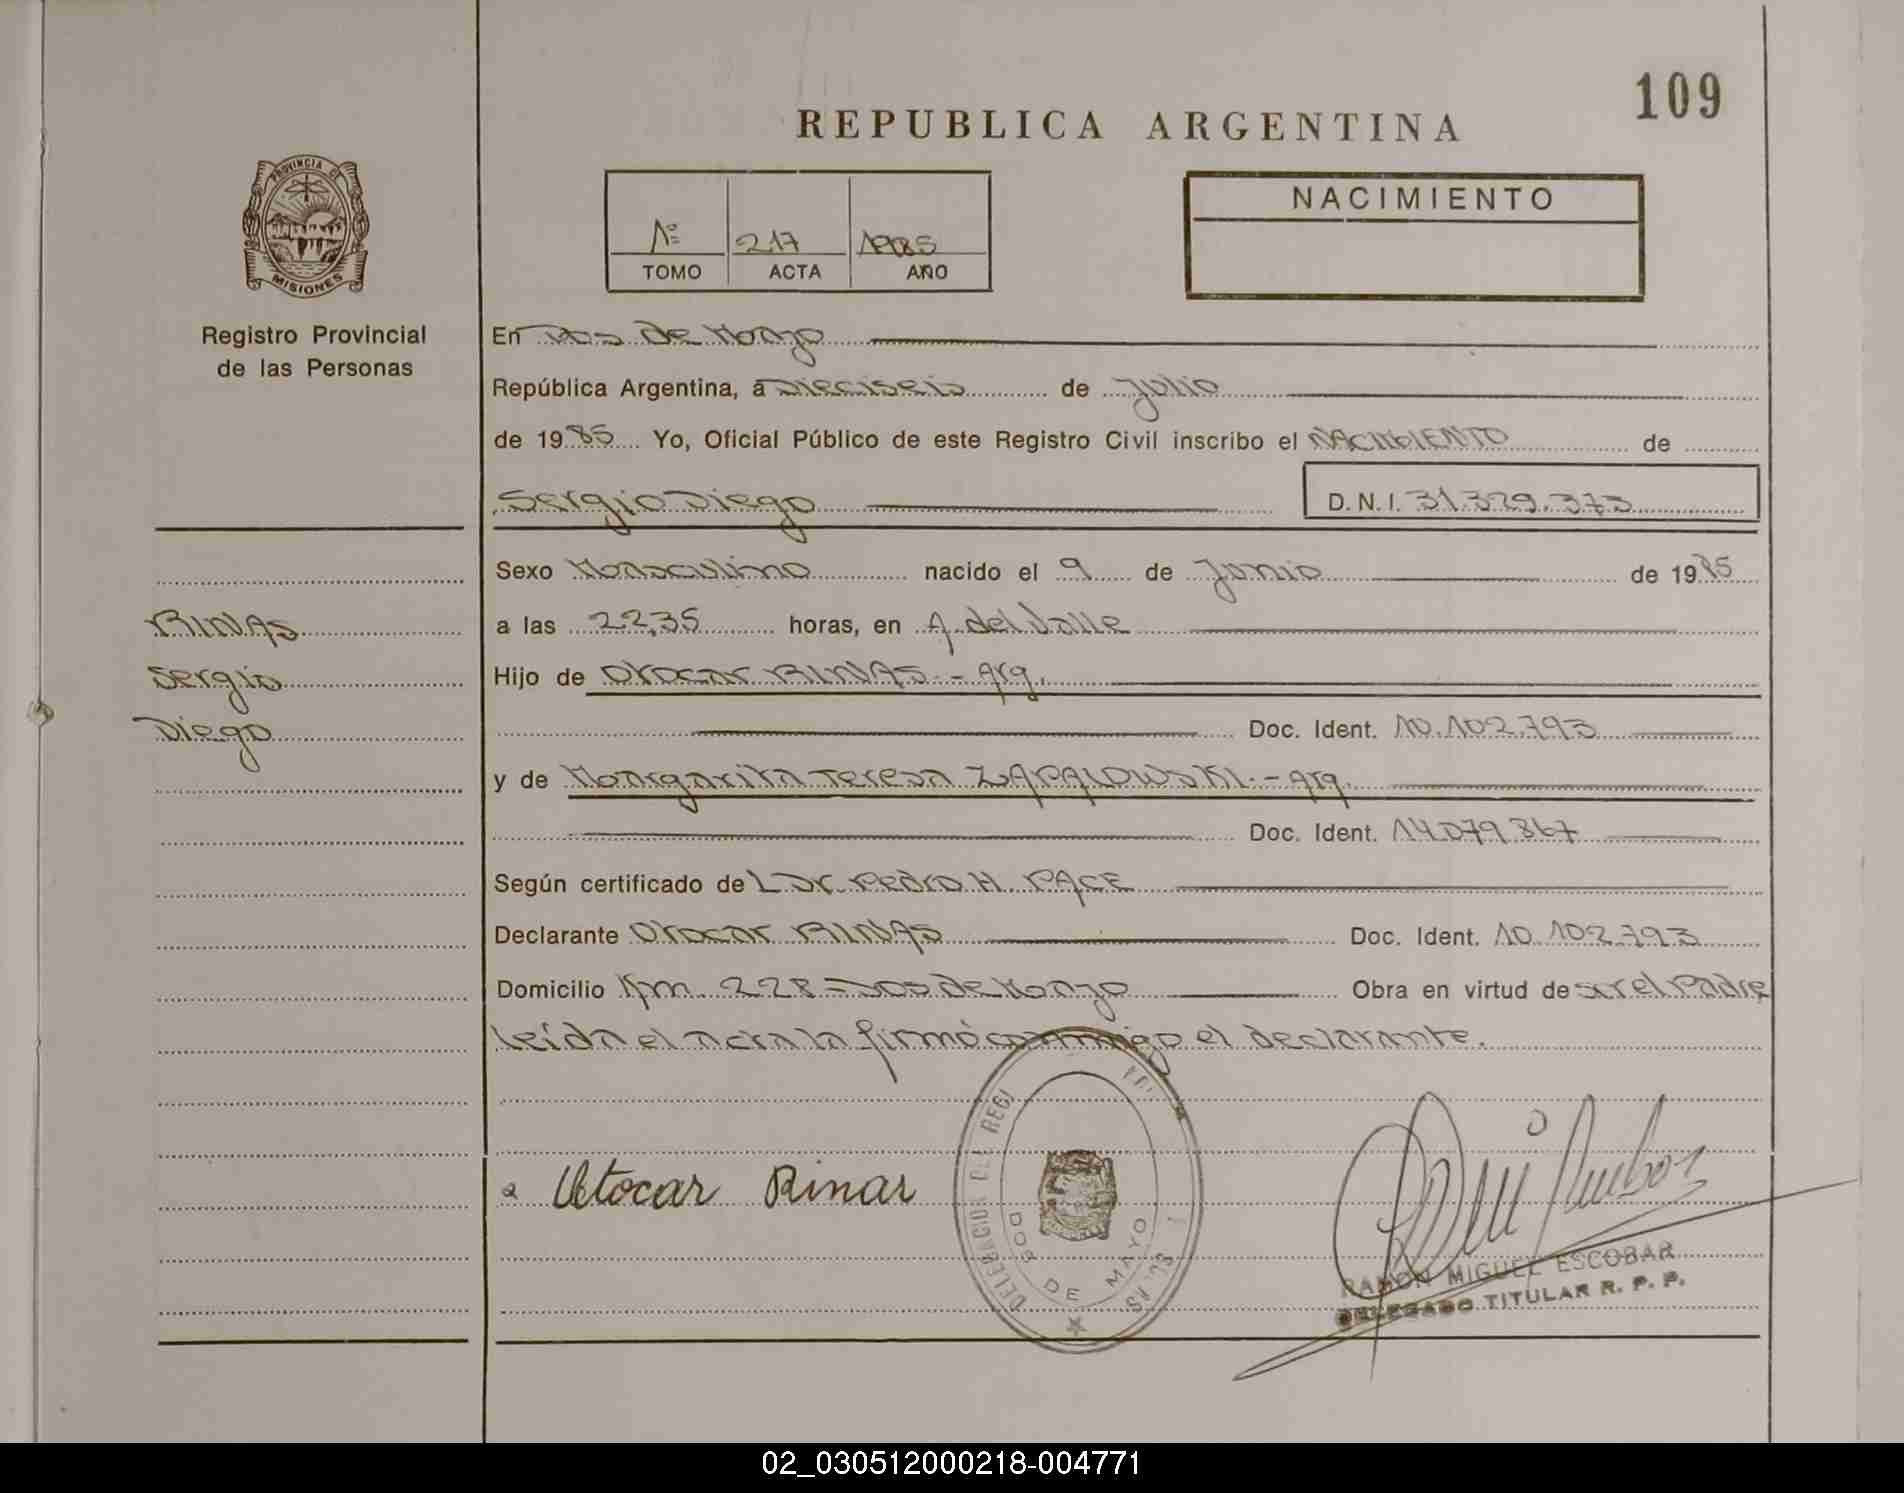 109
REPUBLICA ARGENTINA
PROVINCIA DE
MISIONES
Registro Provincial
de las Personas
1º 217 1985
TOMO ACTA AÑO
NACIMIENTO
En Dos de Mayo
República Argentina, a Dieciseis de Julio
de 1985 Yo, Oficial Público de este Registro Civil inscribo el NACIMIENTO de
Sergio Diego D.N.I. 31.329.373
Sexo Masculino nacido el 9 de Junio de 1985
RINAS
Sergio
Diego
a las 22,35 horas, en A. del Valle
Hijo de Otocar RINAS.- Arg.
Doc. Ident. 10.102.793
y de Margarita Teresa ZAPALOWSKI.- Arg.
Doc. Ident. 14.079.867
Según certificado de L Dr. Pedro H. PACE
Declarante Otocar RINAS Doc. Ident. 10.102.793
Domicilio Km. 228 - Dos de Mayo Obra en virtud de ser el Padre
leída el acta la firmó conmigo el declarante.
Otocar Rinas
DELEGACION DEL REGI
DOS DE MAYO
RAMON MIGUEL ESCOBAR
DELEGADO TITULAR R. P. P.
02_030512000218-004771